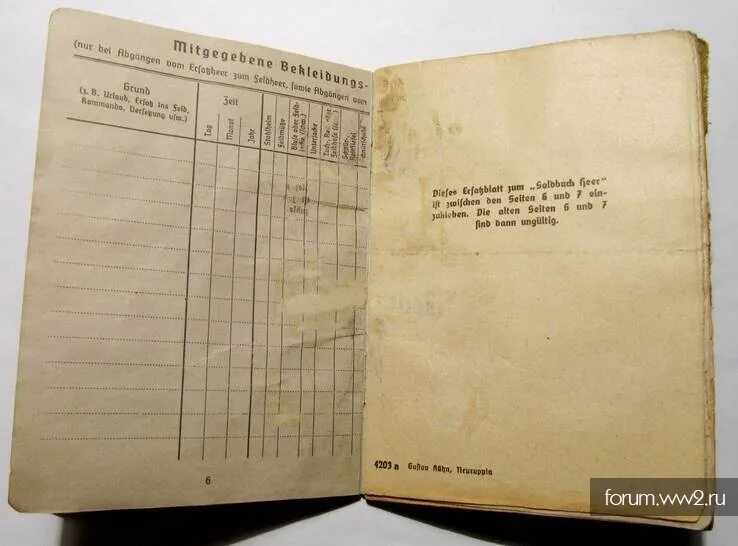 Mitgegebene Bekleidungs-
(nur bei Abgängen vom Ersatzheer zum Feldheer, sowie Abgängen vom
Grund
(z. B. Urlaub, Ersatz ins Feld,
Kommando, Versetzung usw.)
Zeit
Tag
Monat
Jahr
Stahlhelm
Feldmütze
Bluse oder Feld-
Unterjacke
Tuch-, Rei
6
Dieses Ersatzblatt zum „Soldbuch Heer“
ist zwischen den Seiten 6 und 7 ein-
zukleben. Die alten Seiten 6 und 7
sind dann ungültig.
4203 a Gustav Kühn, Neuruppin
forum.ww2.ru